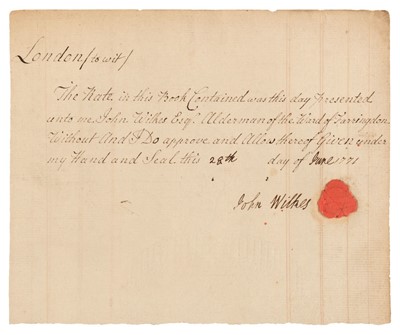 London / to wit /
The Rate in this Book Contained was this day Presented
unto me John Wilkes Esqr. Alderman of the Ward of Farringdon
Without And I Do approve and Allow thereof Given under
my Hand and Seal this 28th day of June 1771
John Wilkes